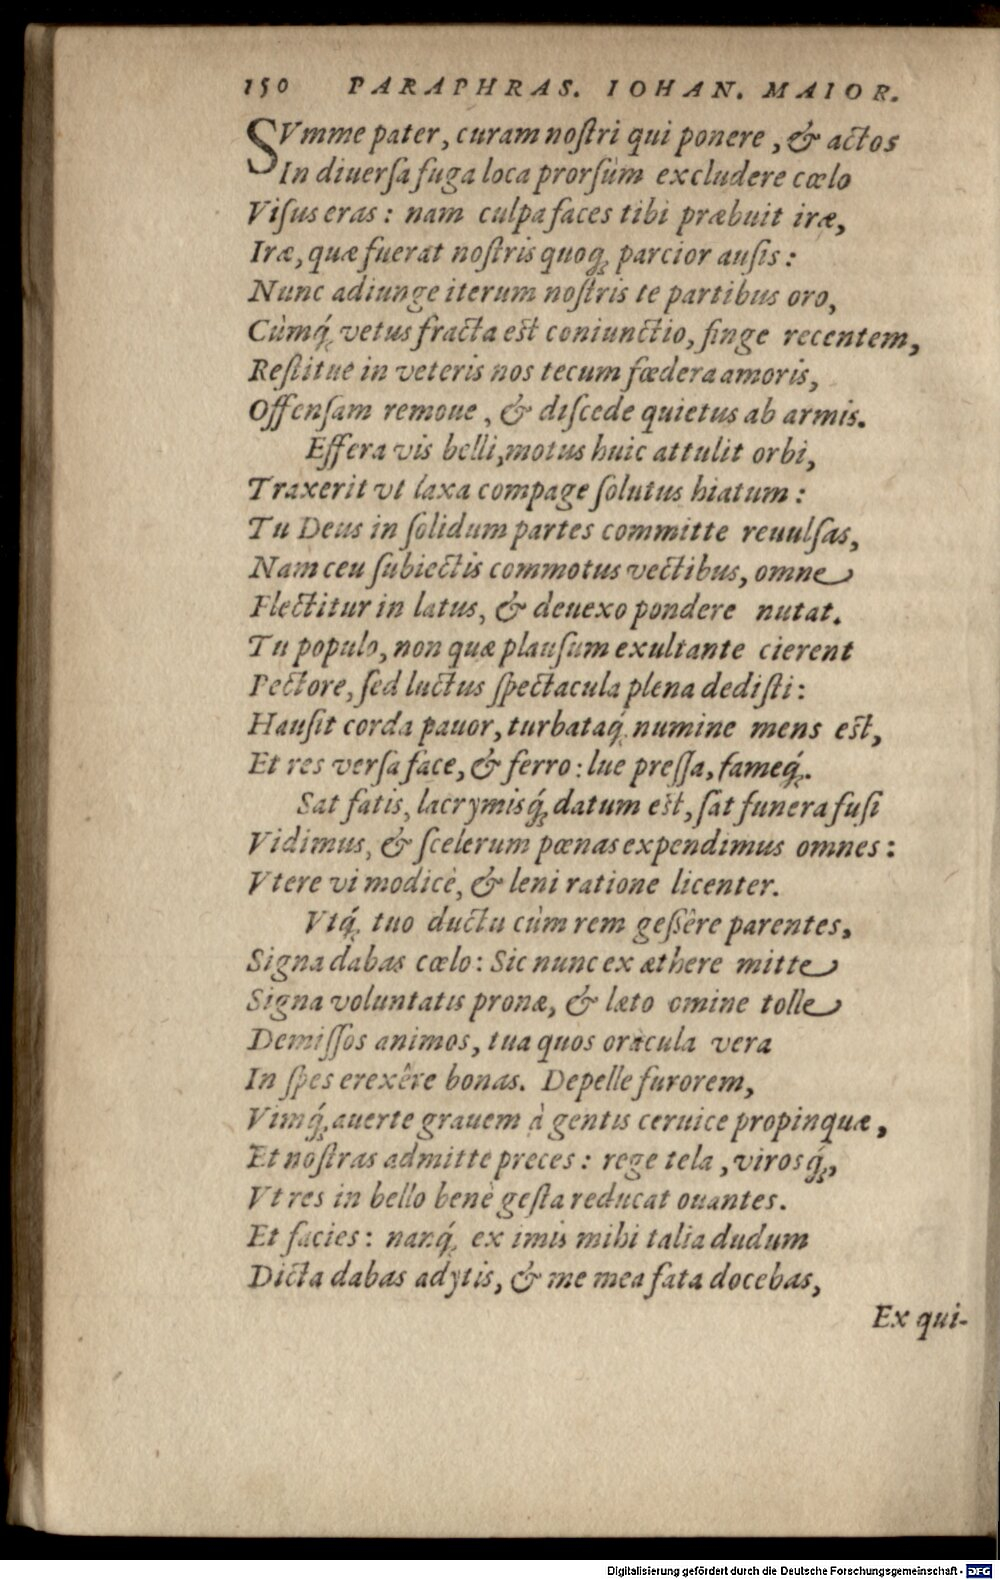 150 PARAPHRAS. IOHAN. MAIOR.
SVmme pater, curam noſtri qui ponere, & actos
In diuerſa fuga loca prorſùm excludere cœlo
Viſus eras: nam culpa faces tibi præbuit iræ,
Iræ, quæ fuerat noſtris quoq; parcior auſis:
Nunc adiunge iterum noſtris te partibus oro,
Cùmq́; vetus fracta est coniunctio, finge recentem,
Reſtitue in veteris nos tecum fœdera amoris,
Offenſam remoue, & diſcede quietus ab armis.
Effera vis belli, motus huic attulit orbi,
Traxerit vt laxa compage ſolutus hiatum:
Tu Deus in ſolidum partes committe reuulſas,
Nam ceu ſubiectis commotus vectibus, omne
Flectitur in latus, & deuexo pondere nutat.
Tu populo, non quæ plauſum exultante cierent
Pectore, ſed luctus ſpectacula plena dediſti:
Hauſit corda pauor, turbataq́; numine mens est,
Et res verſa face, & ferro: lue preſſa, fameq́;.
Sat fatis, lacrymisq́; datum est, ſat funera fuſi
Vidimus, & ſcelerum pœnas expendimus omnes:
Vtere vi modicè, & leni ratione licenter.
Vtq́; tuo ductu cùm rem geſsêre parentes,
Signa dabas cœlo: Sic nunc ex æthere mitte
Signa voluntatis pronæ, & læto omine tolle
Demiſſos animos, tua quos oracula vera
In ſpes erexêre bonas. Depelle furorem,
Vimq́; auerte grauem à gentis ceruice propinquæ,
Et noſtras admitte preces: rege tela, virosq́;,
Vt res in bello benè geſta reducat ouantes.
Et facies: nanq́; ex imis mihi talia dudum
Dicta dabas adytis, & me mea fata docebas,
Ex qui-
Digitalisierung gefördert durch die Deutsche Forschungsgemeinschaft - DFG